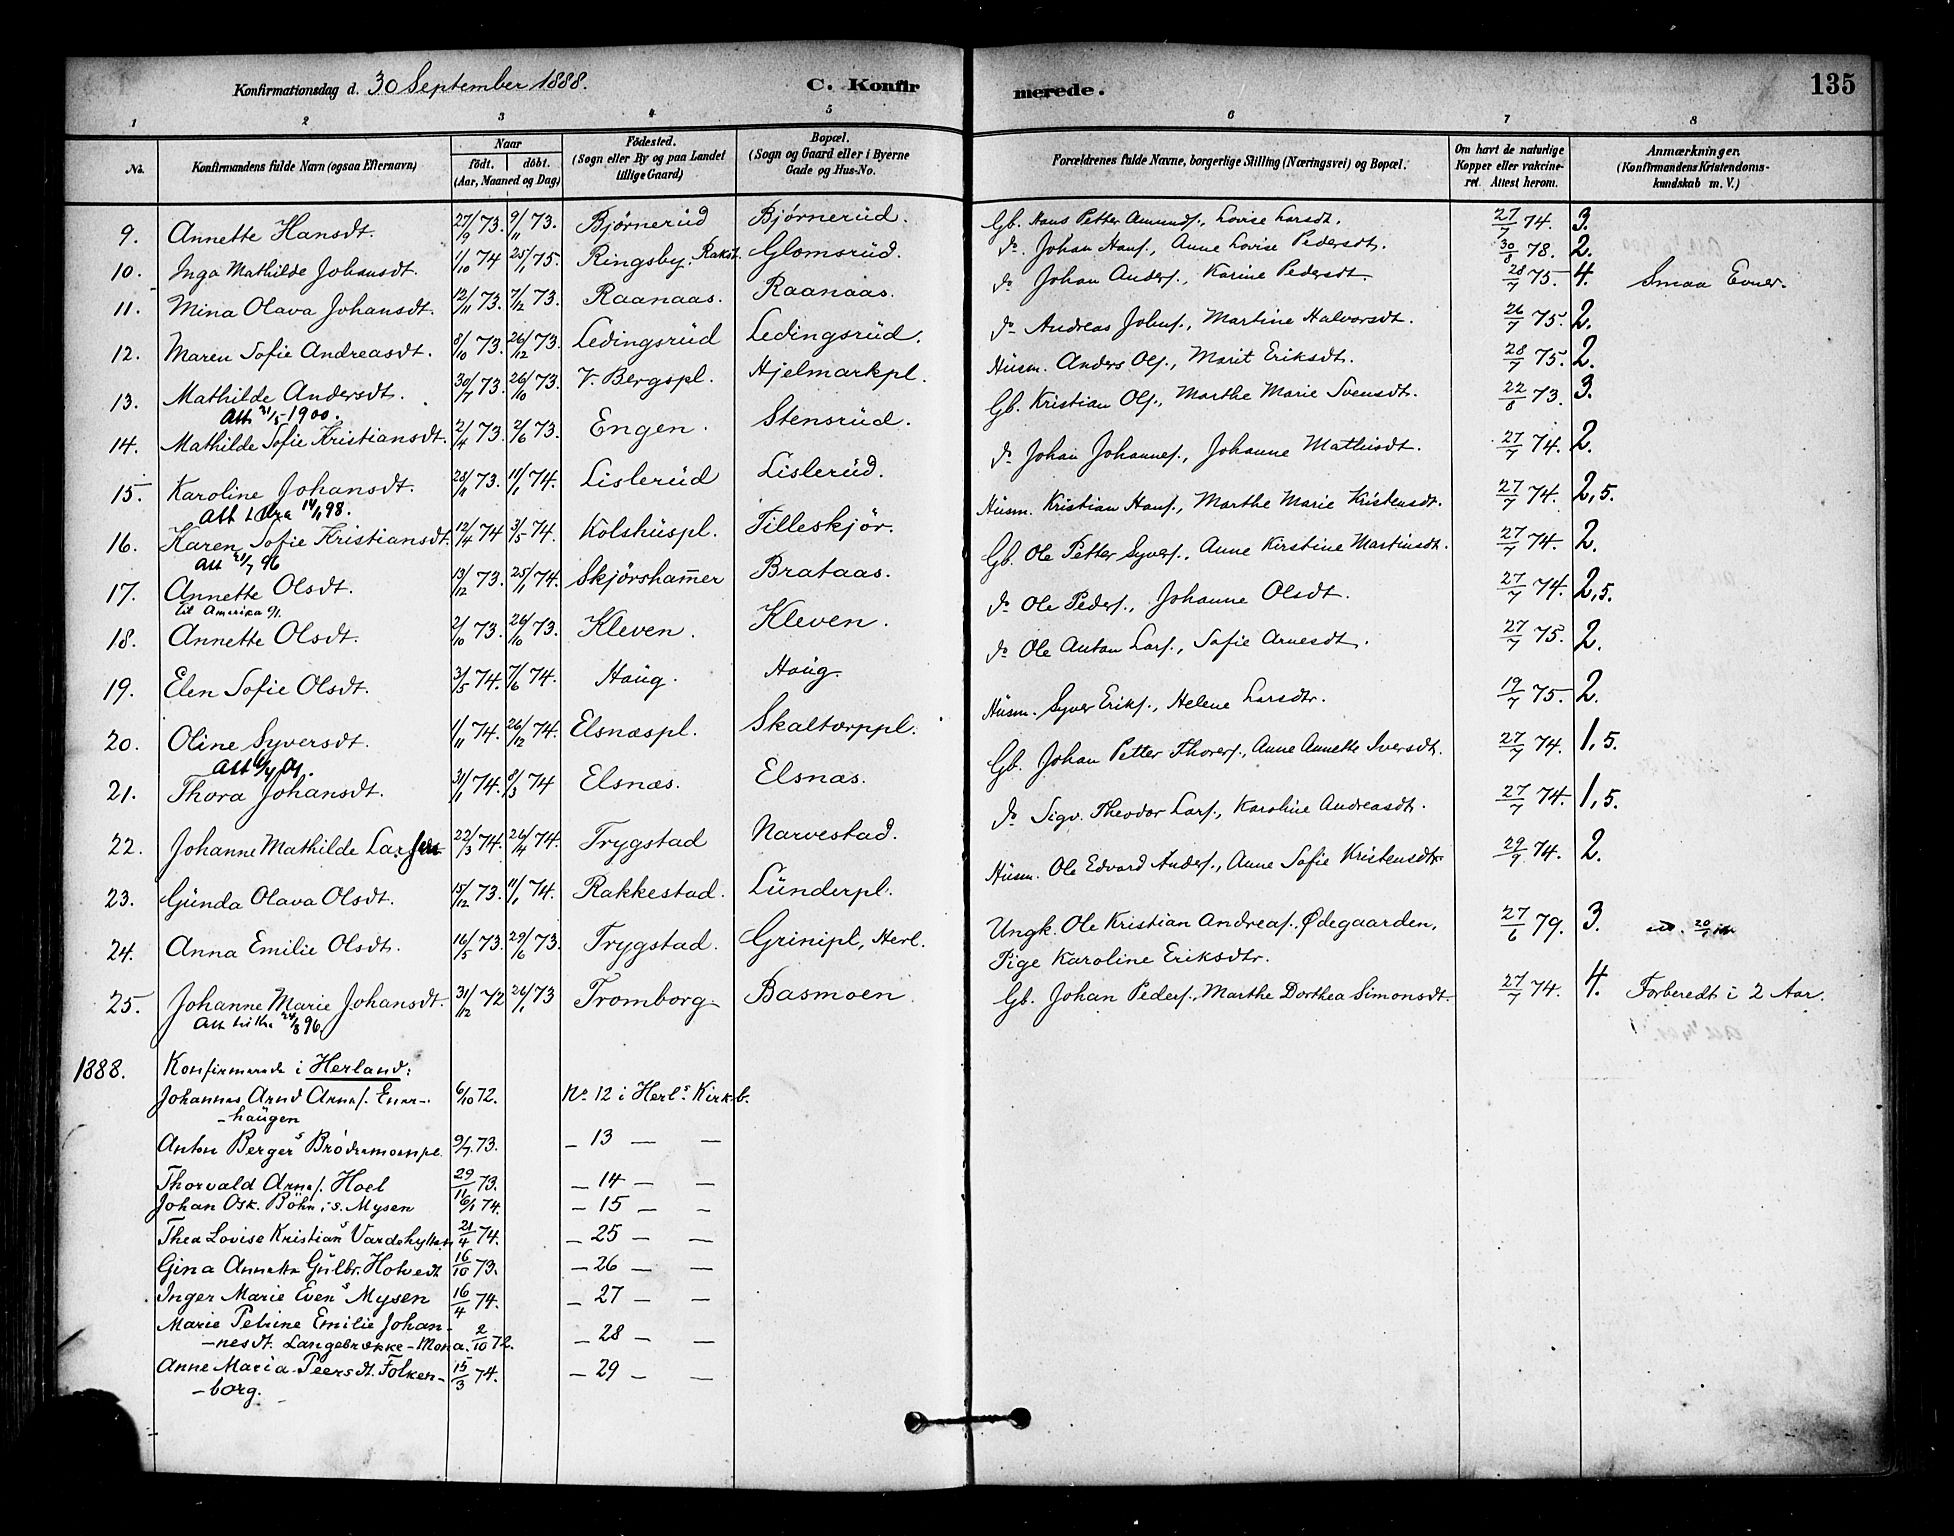 Konfirmationsdag d. 30 September 1888.
C. Konfirmerede.
135
1 2 3 4 5 6 7 8
No.
Konfirmandens fulde Navn (ogsaa Efternavn)
Naar
födt. döbt.
(Aar, Maaned og Dag)
Födested.
(Sogn eller By og paa Landet tillige Gaard)
Bopæl.
(Sogn og Gaard eller i Byerne Gade og Hus-No.
Forældrenes fulde Navne, borgerlige Stilling (Næringsvei) og Bopæl.
Om havt de naturlige Kopper eller vakcineret. Attest herom.
Anmærkninger.
(Konfirmandens Kristendomskundskab m. V.)
9. Annette Hansdt. 27/9 73. 9/11 73. Bjørnerüd Bjørnerüd. Gb. Hans Petter Amunds., Lovise Larsdt. 27/7 74. 3.
10. Inga Mathilde Johansdt. 1/10 74 25/1 75. Ringsby, Rakst. Glomsrüd. do Johan Hans., Anne Lovise Pedersdt. 30/8 78. 2.
11. Mina Olava Johansdt. 12/11 73. 7/12 73. Raanaas. Raanaas. do Johan Anders., Karine Pedersdt. 28/7 75. 4. Smaa Evner.
12. Maren Sofie Andreasdt. 8/10 73. 26/12 73. Ledingsrüd Ledingsrüd. do Andreas Johns., Martine Halvorsdt. 26/7 75. 2.
13. Mathilde Andersdt. 30/7 73. 26/10 73. V. Bergspl. Hjelmarkpl. Husm. Anders Ols., Marit Eriksdt. 28/7 75. 2.
Att. 31/5 1900.
14. Mathilde Sofie Kristiansdt. 2/4 73. 2/6 73. Engen. Stensrüd. Gb. Kristian Ols., Marthe Marie Svensdt. 22/8 73. 3.
15. Karoline Johansdt. 28/11 73. 11/1 74. Lislerüd Lislerüd. do Johan Johannes., Johanne Mathisdt. 27/7 74. 2.
16. Karen Sofie Kristiansdt. 12/4 74 3/5 74. Kolshüspl. Tilleskjør. Hüsm. Kristian Hans., Marthe Marie Kristensdt. 27/7 74. 2,5.
Att 21/7 96
17. Annette Olsdt. 13/12 73. 25/1 74. Skjørshammer Brataas. Gb. Ole Petter Syvers., Anne Kirstine Martinsdt. 27/7 74. 2.
til Amerika
18. Annette Olsdt. 2/10 73. 26/10 73. Kleven. Kleven. do Ole Peders., Johanne Olsdt. 27/7 74. 2,5.
19. Elen Sofie Olsdt. 3/5 74. 7/6 74. Haüg. Haüg. do Ole Anton Lars., Sofie Arnesdt. 27/7 75. 2.
20. Oline Syversdt. 1/11 74. 26/12 74. Elsnæspl. Skaltorppl. Hüsm. Syver Eriks., Helene Larsdtr. 19/7 75 2.
21. Thora Johansdt. 31/1 74. 8/3 74 Elsnæs. Elsnæs. Gb. Johan Petter Thores., Anne Annette Iversdt. 27/7 74. 1,5.
22. Johanne Mathilde Larsen 22/3 74. 26/4 74. Trygstad Narvestad. do Sigv. Theodor Lars., Karoline Andreasdt. 27/7 74. 1,5.
23. Günda Olava Olsdt. 15/12 73. 11/1 74. Rakkestad. Lünderpl. Hüsm. Ole Edvard Anders., Anne Sofie Kristensdtr 29/7 74. 2.
24. Anna Emilie Olsdt. 16/5 73. 29/6 73. Trygstad. Grinipl, Herl. Ungk. Ole Kristian Andreas. Ødegaarden, 27/6 79. 3.
Pige Karoline Eriksdtr.
25. Johanne Marie Johansdt. 31/12 72 26/1 73 Tromborg. Basmoen. Gb. Johan Peders., Marthe Dorthea Simonsdt. 27/7 74. 4. Forberedt i 2 Aar.
1888. Konfirmerede i Herland:
Johannes Arnd Arnes. Ener-
-haügen 6/10 72. No 12 i Herls Kirkb.
Anton Bergers Brödremoenpl. 9/7 73. — 13 — —
Thorvald Arnes. Hoel 29/11 73. — 14 — —
Johan Osk. Böhn i s. Mysen 6/1 74. — 15 — —
Thea Lovise Kristians Vardehytten 21/4 74. — 25 — —
Gina Annette Gülbr. Hotvedt 16/10 73. — 26 — —
Inger Marie Evens Mysen 16/4 74. — 27 — —
Marie Petrine Emilie Johan-
-nesdt. Langebrække-Mona. 2/10 72. — 28 — —
Anne Maria Peersdt. Folken-
-borg. 15/3 74. — 29 — —